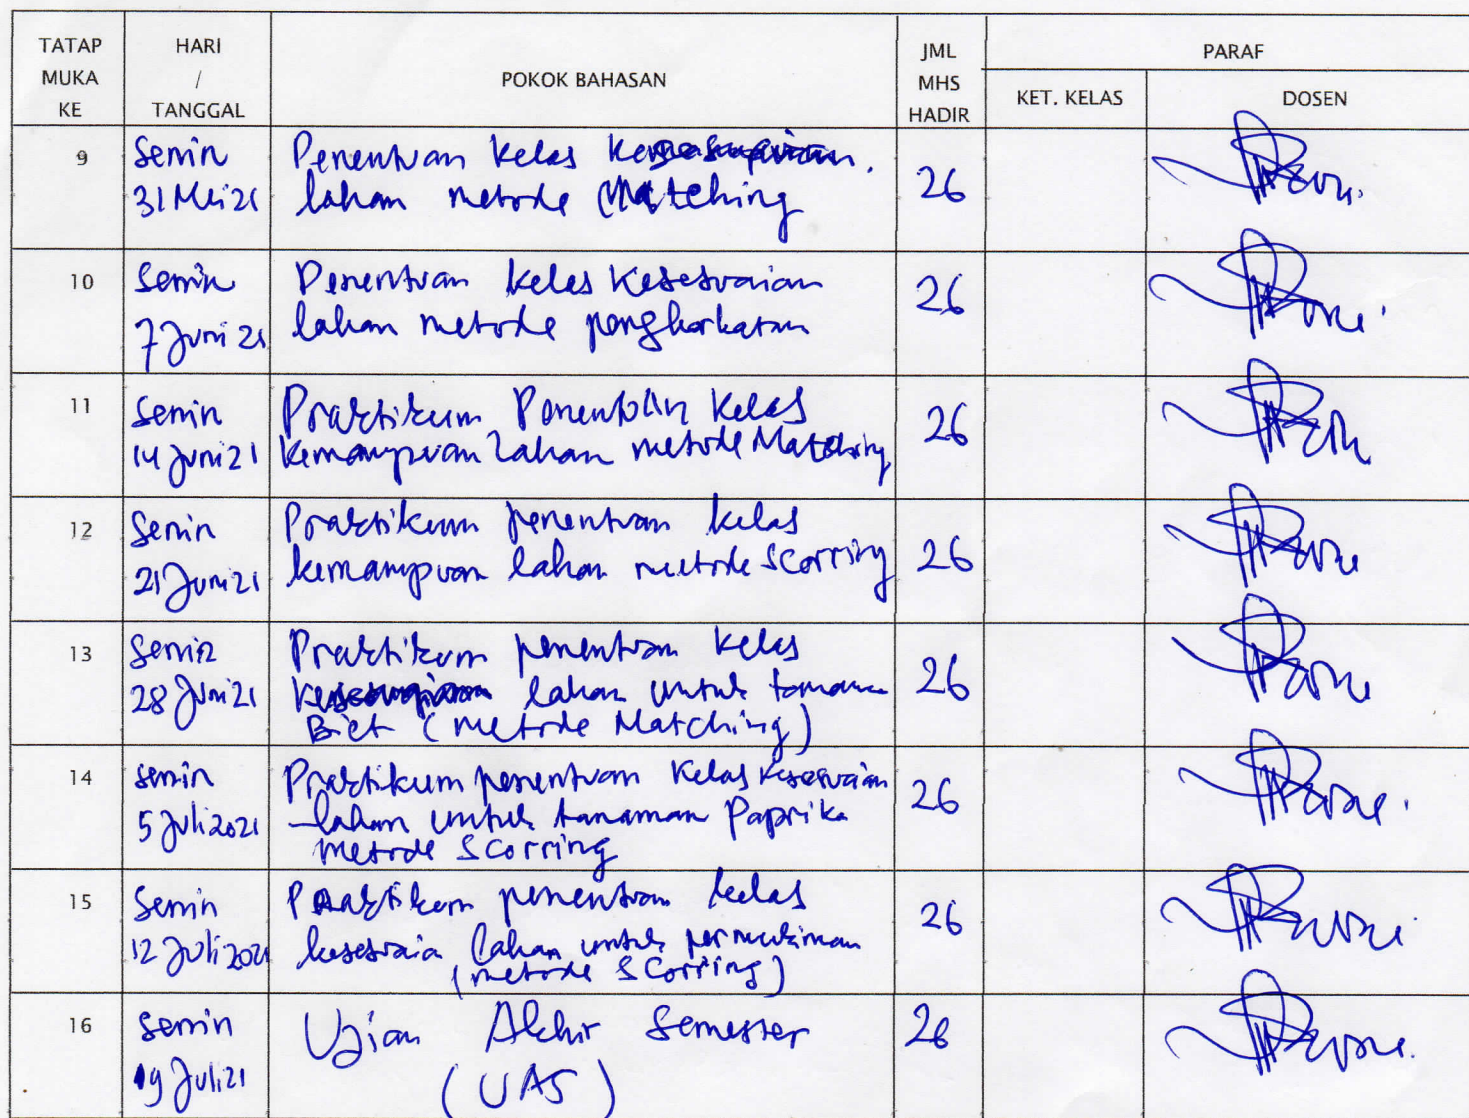 TATAP MUKA KE
HARI / TANGGAL
POKOK BAHASAN
JML MHS HADIR
PARAF
KET. KELAS
DOSEN
9
Senin
31 Mei 21
Penentuan kelas kesesuaian
lahan metode Matching
26
10
Senin
7 Juni 21
Penentuan kelas kesesuaian
lahan metode pengharkatan
26
11
Senin
14 Juni 21
Praktikum Penentuan kelas
kemampuan lahan metode Matching
26
12
Senin
21 Juni 21
Praktikum penentuan kelas
kemampuan lahan metode Scorring
26
13
Senin
28 Juni 21
Praktikum penentuan kelas
kesesuaian lahan untuk tanaman
Biet (metode Matching)
26
14
Senin
5 Juli 2021
Praktikum penentuan kelas kesesuaian
lahan untuk tanaman Paprika
metode Scorring
26
15
Senin
12 Juli 2021
Praktikum penentuan kelas
kesesuaia lahan untuk permukiman
(metode Scorring)
26
16
Senin
19 Juli 21
Ujian Akhir Semester
(UAS)
26